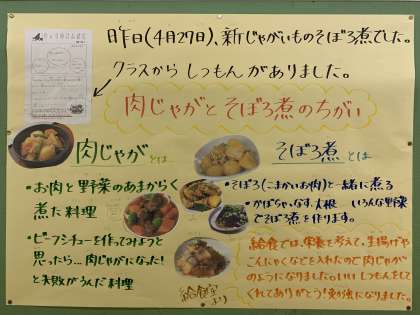 昨日(4月27日)、新じゃがいものそぼろ煮でした。
クラスから しつもん がありました。
肉じゃがと そぼろ煮のちがい
肉じゃがとは
・お肉と野菜のあまからく
煮た料理
・ビーフシチューを作ってみようと
思ったら…肉じゃがになった!
と失敗がうんだ料理
そぼろ煮とは
・そぼろ(こまかいお肉)と一緒に煮る
・かぼちゃ、なす、大根 いろんな野菜
でそぼろ煮を作ります。
給食では、栄養を考えて、生揚げや
こんにゃくなどを入れたので肉じゃが
のようになりました。いい しつもんをして
くれてありがとう!勉強になりました。
給食室
より